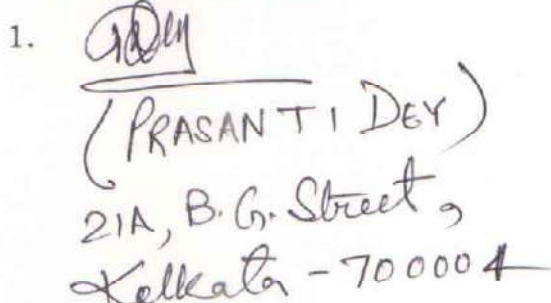 1.
(PRASANTI DEY)
21A, B. G. Street,
Kolkata - 700004